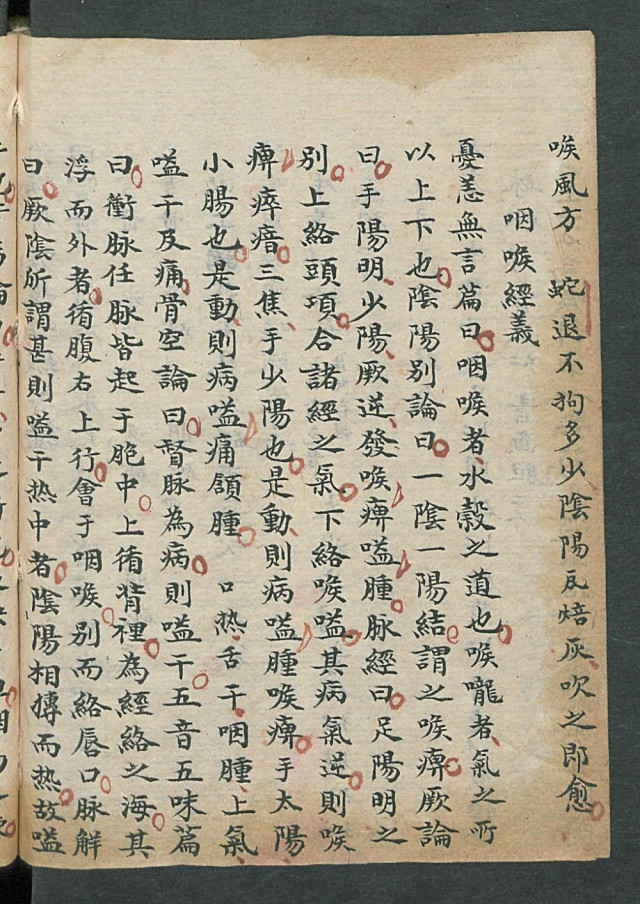 喉風方 蛇退不狗多少陰陽瓦焙灰吹之即愈
咽喉經義
憂恚無言篇曰咽喉者水穀之道也喉嚨者氣之所
以上下也陰陽別論曰一陰一陽結謂之喉痹厥論
曰手陽明少陽厥逆發喉痹嗌腫脉經曰足陽明之
別上絡頭項合諸經之氣下絡喉嗌其病氣逆則喉
痹瘁瘖三焦手少陽也是動則病嗌腫喉痹手太陽
小腸也是動則病嗌痛頷腫 口热舌干咽腫上氣
嗌干及痛骨空論曰督脉為病則嗌干五音五味篇
曰衝脉任脉皆起于胞中上循背裡為經絡之海其
浮而外者循腹右上行會于咽喉別而絡唇口脉解
曰厥陰所謂甚則嗌干热中者陰陽相搏而热故嗌